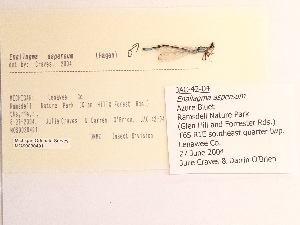 Enallagma aspersum (Hagen)
det by: Craves, 2004
MICHIGAN: Lenawee Co
Ramsdell Nature Park (Glen Hill & Forrest Rds.)
6-27-2004, Julie Craves & Darrin O'Brien, JAC-42-04
UMMZ Insect Division
Michigan Odonata Survey
JAC-42-04
Enallagma aspersum
Azure Bluet
Ramsdell Nature Park
(Glen Hill and Forrester Rds.)
T6S R1E southeast quarter twp.
Lenawee Co.
27 June 2004
Julie Craves & Darrin O'Brien